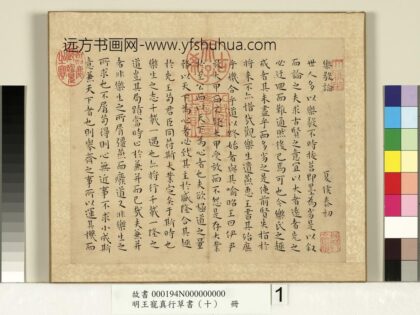 远方书画网-www.yfshuhua.com
樂毅論 夏侯泰初
世人多以樂毅不時拔莒即墨為劣是以叙
而論之夫求古賢之意宜以大者遠者先之
必迂迴而難通然後已焉可也今樂氏之趣
或者其未盡乎而多劣之是使前賢失指於
將來不亦惜哉觀樂生遺燕惠王書其殆庶
乎機合乎道以終始者與其喻昭王曰伊尹
放太甲而不疑太甲受放而不怨是存大業
於至公而以天下為心者也夫欲極道之量
務以天下為心者必致其主於盛隆合其趣
於先王苟君臣同符斯大業定矣于斯時也
樂生之志千載一遇也亦將行千載一隆之
道豈其局蹟當時止於兼并而已哉夫兼并
者非樂生之所屑彊燕而廢道又非樂生之
所求也不屑苟得則心無近事不求小成斯
意兼天下者也則舉齊之事所以運其機而
故書 000194N000000000
明王寵真行草書（十） 冊
1